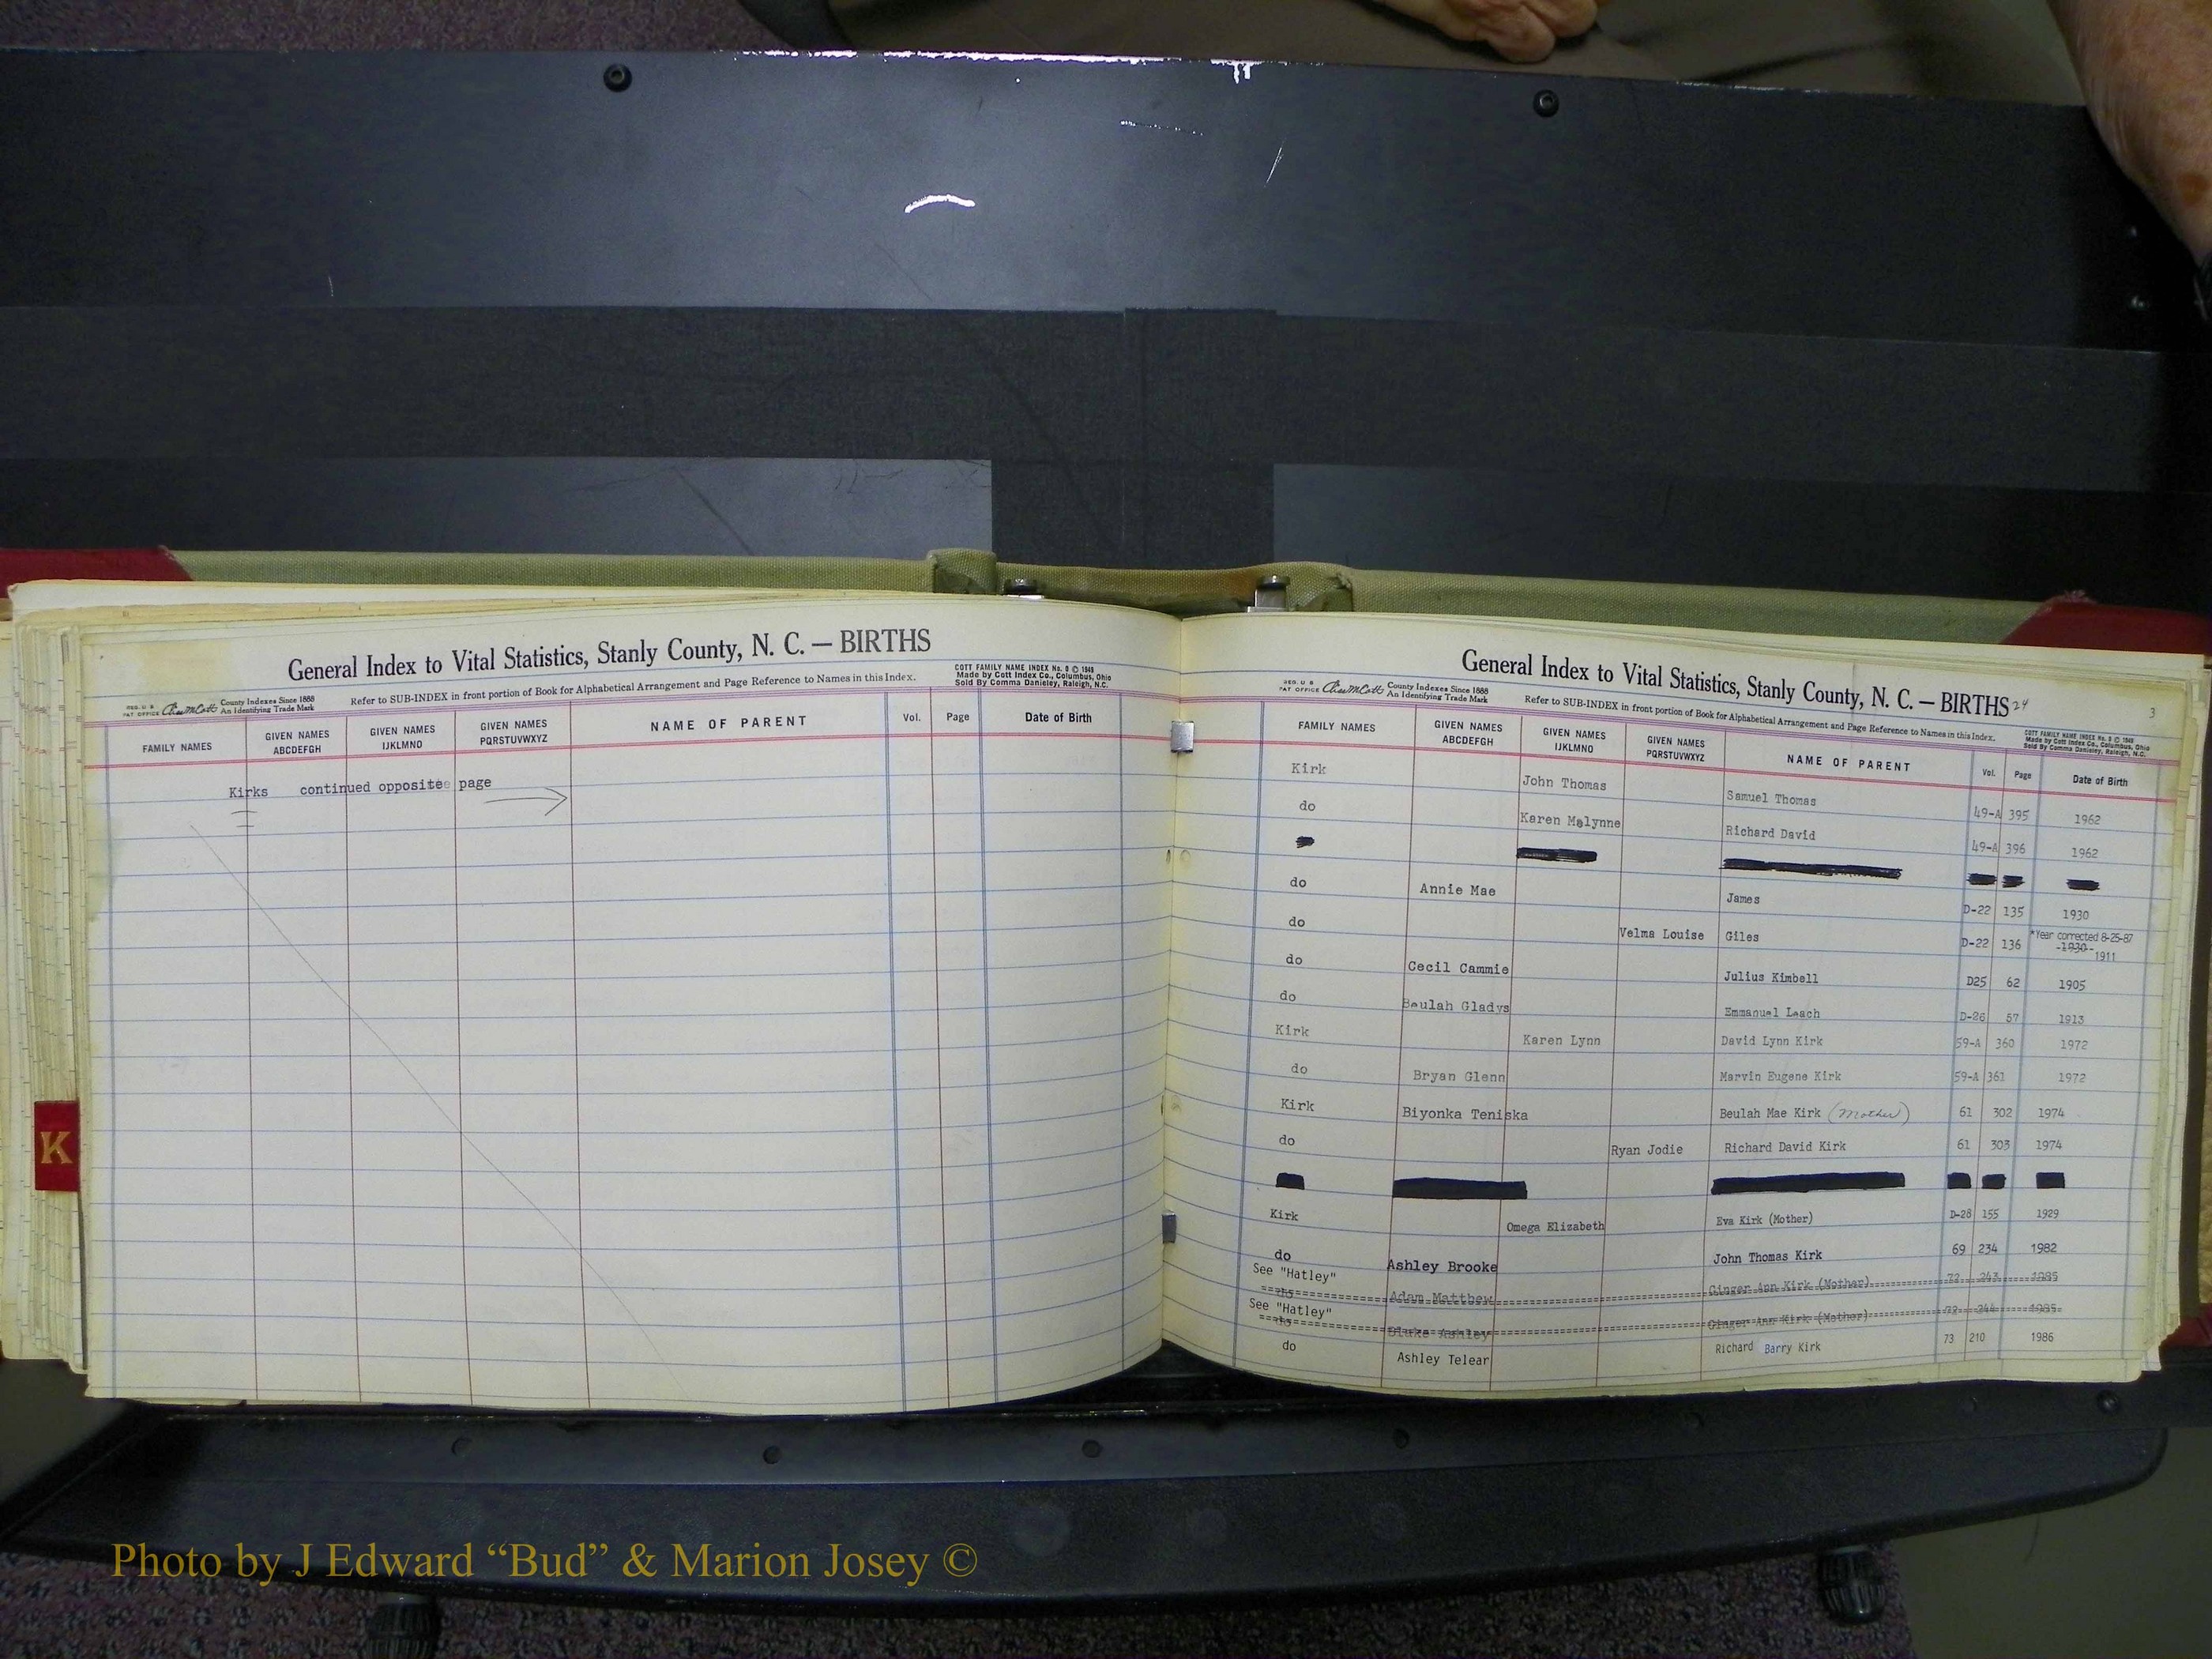 General Index to Vital Statistics, Stanly County, N. C. — BIRTHS
COTT FAMILY NAME INDEX No. 8 © 1948
Made by Cott Index Co., Columbus, Ohio
Sold By Comma Danieley, Raleigh, N.C.
REG. U S
PAT OFFICE
County Indexes Since 1888
An Identifying Trade Mark
Refer to SUB-INDEX in front portion of Book for Alphabetical Arrangement and Page Reference to Names in this Index.
FAMILY NAMES GIVEN NAMES ABCDEFGH GIVEN NAMES IJKLMNO GIVEN NAMES PQRSTUVWXYZ NAME OF PARENT Vol. Page Date of Birth
Kirks continued oppositee page
K
General Index to Vital Statistics, Stanly County, N. C. — BIRTHS 24
3
REG. U S
PAT OFFICE
County Indexes Since 1888
An Identifying Trade Mark
Refer to SUB-INDEX in front portion of Book for Alphabetical Arrangement and Page Reference to Names in this Index.
COTT FAMILY NAME INDEX No. 8 © 1948
Made by Cott Index Co., Columbus, Ohio
Sold By Comma Danieley, Raleigh, N.C.
FAMILY NAMES GIVEN NAMES ABCDEFGH GIVEN NAMES IJKLMNO GIVEN NAMES PQRSTUVWXYZ NAME OF PARENT Vol. Page Date of Birth
Kirk John Thomas Samuel Thomas 49-A 395 1962
do Karen Malynne Richard David 49-A 396 1962
do Annie Mae James D-22 135 1930
do Velma Louise Giles D-22 136 *Year corrected 8-25-87 -1930- 1911
do Cecil Cammie Julius Kimbell D25 62 1905
do Beulah Gladys Emmanuel Leach D-26 57 1913
Kirk Karen Lynn David Lynn Kirk 59-A 360 1972
do Bryan Glenn Marvin Eugene Kirk 59-A 361 1972
Kirk Biyonka Teniska Beulah Mae Kirk (Mother) 61 302 1974
do Ryan Jodie Richard David Kirk 61 303 1974
Kirk Omega Elizabeth Eva Kirk (Mother) D-28 155 1929
do Ashley Brooke John Thomas Kirk 69 234 1982
See "Hatley"
do Adam Matthew Ginger Ann Kirk (Mother) 72 243 1985
See "Hatley"
do Bluke Ashley Ginger Ann Kirk (Mother) 72 244 1985
do Ashley Telear Richard Barry Kirk 73 210 1986
Photo by J Edward “Bud” & Marion Josey ©